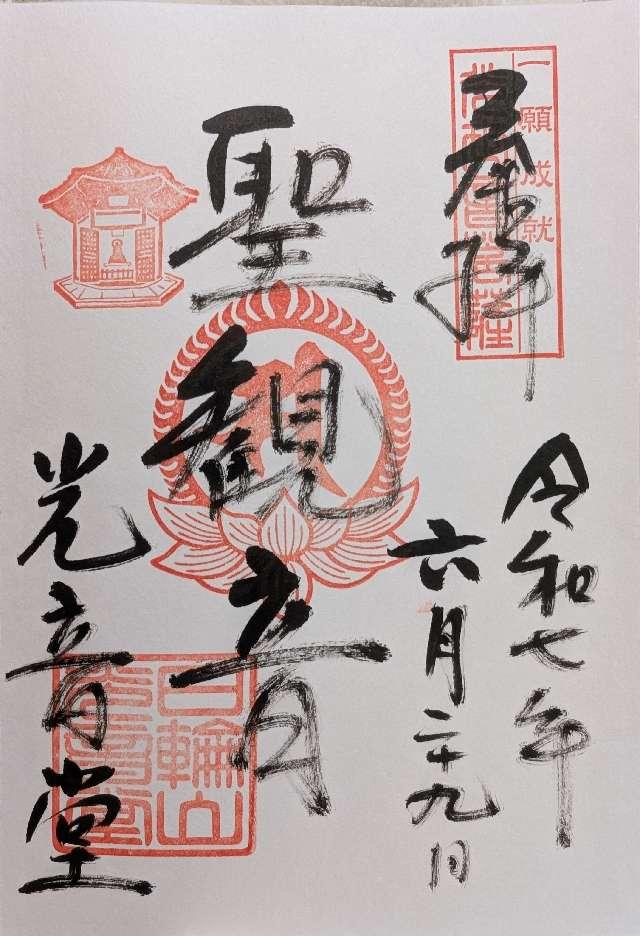 奉拝
一願成就
令和七年
六月二十九日
聖観音
光音堂
日輪山
光音堂